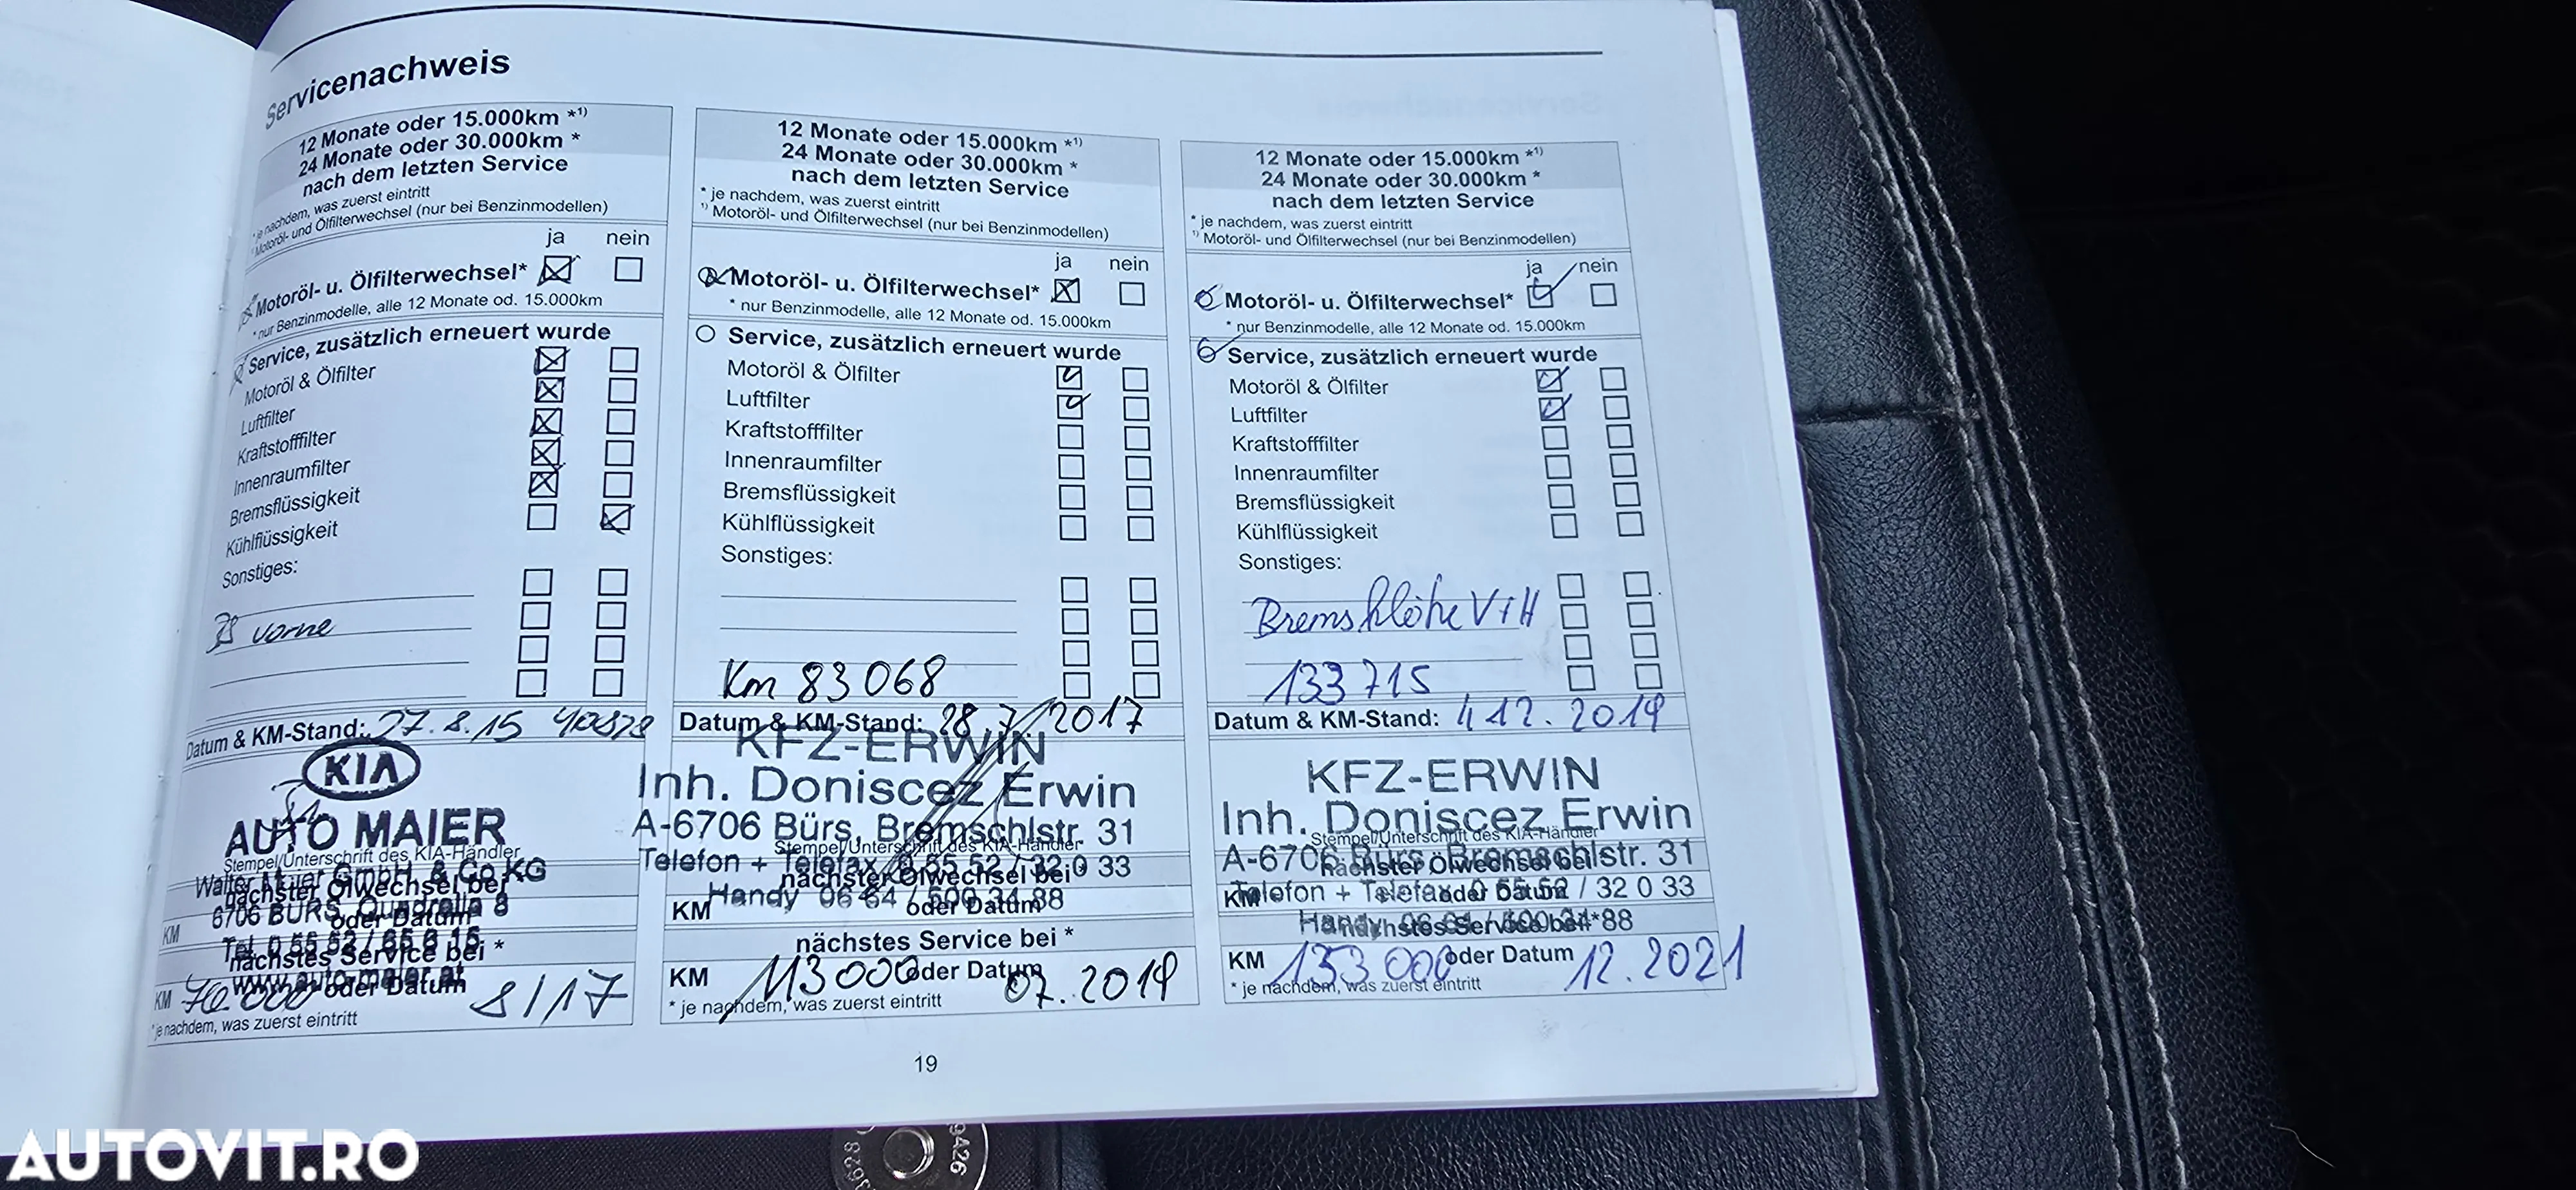 Servicenachweis
12 Monate oder 15.000km *1)
24 Monate oder 30.000km *
nach dem letzten Service
* je nachdem, was zuerst eintritt
1) Motoröl- und Ölfilterwechsel (nur bei Benzinmodellen)
ja nein
Motoröl- u. Ölfilterwechsel*
* nur Benzinmodelle, alle 12 Monate od. 15.000km
Service, zusätzlich erneuert wurde
Motoröl & Ölfilter
Luftfilter
Kraftstofffilter
Innenraumfilter
Bremsflüssigkeit
Kühlflüssigkeit
Sonstiges:
vorne
Datum & KM-Stand: 27.8.15
KIA
AUTO MAIER
Stempel/Unterschrift des KIA-Händler
Walter Maier GmbH. & Co KG
nächster Ölwechsel bei
6706 BÜRS, Quadrella 8
KM oder Datum
nächstes Service bei *
www.auto-maier.at
KM 70 000 oder Datum 8/17
* je nachdem, was zuerst eintritt
12 Monate oder 15.000km *1)
24 Monate oder 30.000km *
nach dem letzten Service
* je nachdem, was zuerst eintritt
1) Motoröl- und Ölfilterwechsel (nur bei Benzinmodellen)
ja nein
Motoröl- u. Ölfilterwechsel*
* nur Benzinmodelle, alle 12 Monate od. 15.000km
Service, zusätzlich erneuert wurde
Motoröl & Ölfilter
Luftfilter
Kraftstofffilter
Innenraumfilter
Bremsflüssigkeit
Kühlflüssigkeit
Sonstiges:
Km 83068
Datum & KM-Stand: 28.7/2017
KFZ-ERWIN
Inh. Doniscez Erwin
A-6706 Bürs, Bremschlstr. 31
Stempel/Unterschrift des KIA-Händler
Telefon + Telefax 0 55 52 / 32 0 33
nächster Ölwechsel bei*
Handy 06 64 / 500 34 88
KM oder Datum
nächstes Service bei *
KM 113000 oder Datum 07.2019
* je nachdem, was zuerst eintritt
12 Monate oder 15.000km *1)
24 Monate oder 30.000km *
nach dem letzten Service
* je nachdem, was zuerst eintritt
1) Motoröl- und Ölfilterwechsel (nur bei Benzinmodellen)
ja nein
Motoröl- u. Ölfilterwechsel*
* nur Benzinmodelle, alle 12 Monate od. 15.000km
Service, zusätzlich erneuert wurde
Motoröl & Ölfilter
Luftfilter
Kraftstofffilter
Innenraumfilter
Bremsflüssigkeit
Kühlflüssigkeit
Sonstiges:
Bremsklötze V+H
133715
Datum & KM-Stand: 4.12.2019
KFZ-ERWIN
Inh. Doniscez Erwin
Stempel/Unterschrift des KIA-Händler
A-6706 Bürs, Bremschlstr. 31
nächster Ölwechsel bei*
Telefon + Telefax 0 55 52 / 32 0 33
KM oder Datum
Handy 06 64 / 500 34 88
nächstes Service bei *
KM 153 000 oder Datum 12.2021
* je nachdem, was zuerst eintritt
19
AUTOVIT.RO
9426